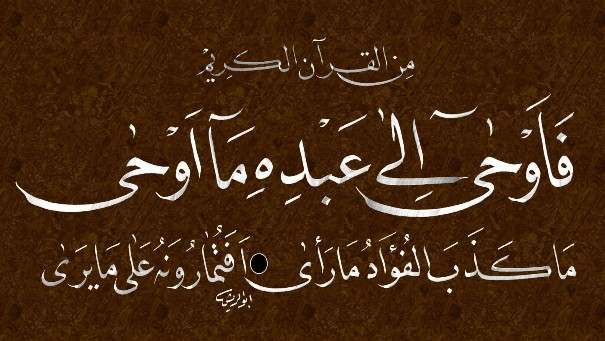 مِنَ القرآن الكريم
فَاَوْحٰى اِلٰى عَبْدِهِ مَآ اَوْحٰى
مَا كَذَبَ الفُؤَادُ مَا رَأىٰ اَفَتُمَارُونَهُ عَلٰى مَا يَرىٰ